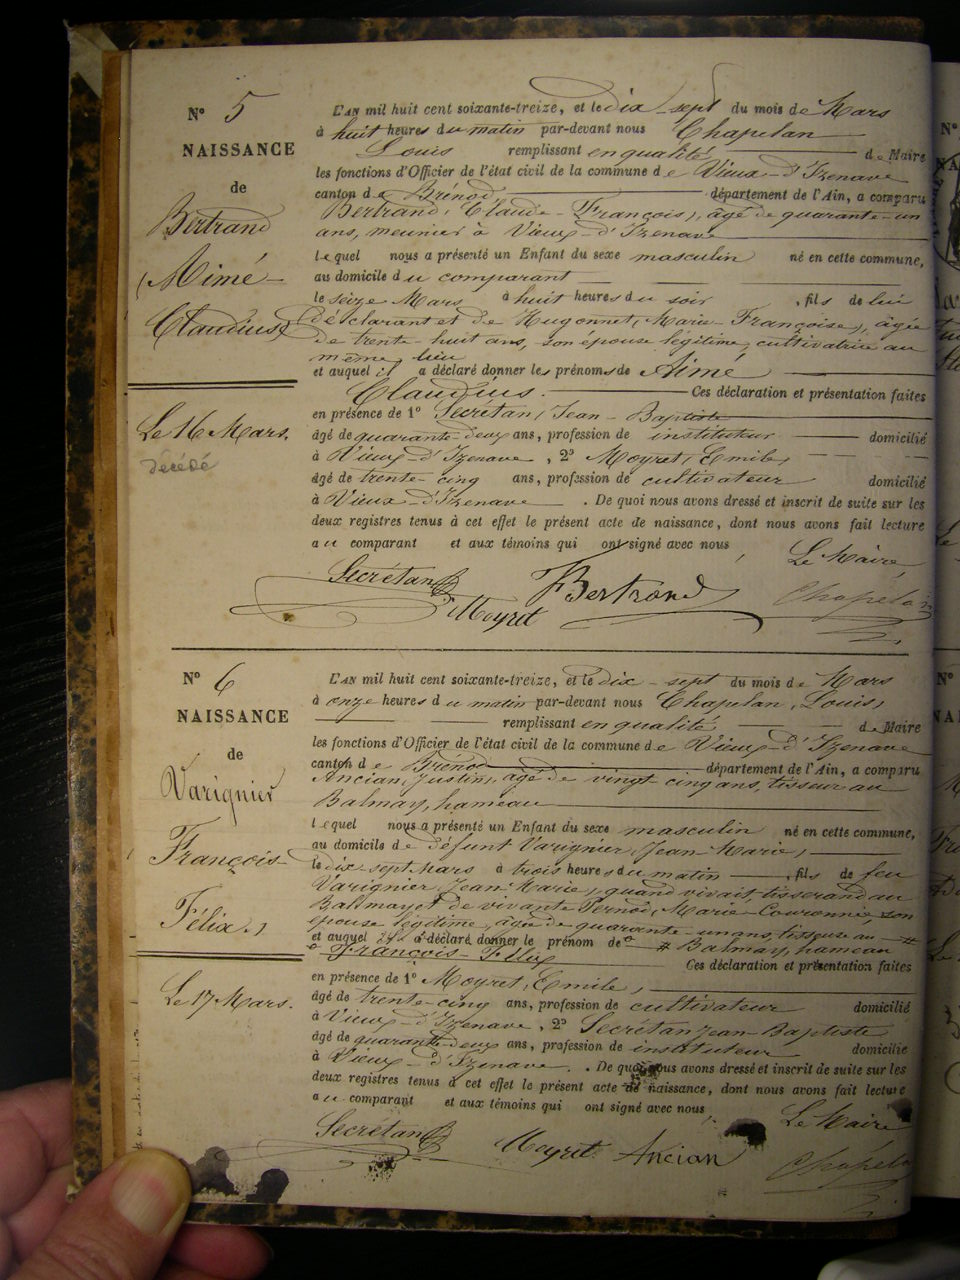 N° 5
NAISSANCE
de
Bertrand
(Aimé
Claudius)
Le 16 Mars.
décédé
L'AN mil huit cent soixante-treize, et le dix-sept du mois de Mars
à huit heures du matin par-devant nous Chapelan
Louis remplissant en qualité de Maire
les fonctions d'Officier de l'état civil de la commune de Vieux-d'Izenave
canton de Brénod département de l'Ain, a comparu
Bertrand, Claude-François, âgé de quarante-un
ans, meunier à Vieux-d'Izenave
lequel nous a présenté un Enfant du sexe masculin né en cette commune,
au domicile du comparant
le seize Mars à huit heures du soir, fils de lui
déclarant et de Hugonnet, Marie-Françoise, âgée
de trente-huit ans, son épouse légitime, cultivatrice au
même lieu
et auquel il a déclaré donner les prénoms de Aimé
Claudius. Ces déclaration et présentation faites
en présence de 1° Secrétan, Jean-Baptiste
âgé de quarante-deux ans, profession de instituteur domicilié
à Vieux-d'Izenave, 2° Moyret, Emile,
âgé de trente-cinq ans, profession de cultivateur domicilié
à Vieux-d'Izenave. De quoi nous avons dressé et inscrit de suite sur les
deux registres tenus à cet effet le présent acte de naissance, dont nous avons fait lecture
au comparant et aux témoins qui ont signé avec nous
Le Maire,
Secrétan Moyret Bertrand Chapelan
N° 6
NAISSANCE
de
Varignier
François-
Félix.
Le 17 Mars.
L'AN mil huit cent soixante-treize, et le dix-sept du mois de Mars
à onze heures du matin par-devant nous Chapelan, Louis,
remplissant en qualité de Maire
les fonctions d'Officier de l'état civil de la commune de Vieux-d'Izenave
canton de Brénod département de l'Ain, a comparu
Ancian, Justin, âgé de vingt cinq ans, tisseur au
Balmay, hameau
lequel nous a présenté un Enfant du sexe masculin né en cette commune,
au domicile de défunt Varignier, Jean-Marie,
le dix sept Mars à trois heures du matin, fils de feu
Varignier, Jean-Marie, quand vivait, tisserand au
Balmay et de vivante Marie son
épouse légitime, âgée de quarante-un ans, tisseuse au #
et auquel il a déclaré donner le prénom de # Balmay, hameau
François-Félix Ces déclaration et présentation faites
en présence de 1° Moyret, Emile,
âgé de trente-cinq ans, profession de cultivateur domicilié
à Vieux-d'Izenave, 2° Secrétan Jean-Baptiste
âgé de quarante-deux ans, profession de instituteur domicilié
à Vieux-d'Izenave. De quoi nous avons dressé et inscrit de suite sur les
deux registres tenus à cet effet le présent acte de naissance, dont nous avons fait lecture
au comparant et aux témoins qui ont signé avec nous,
Le Maire
Secrétan Moyret Ancian Chapelan